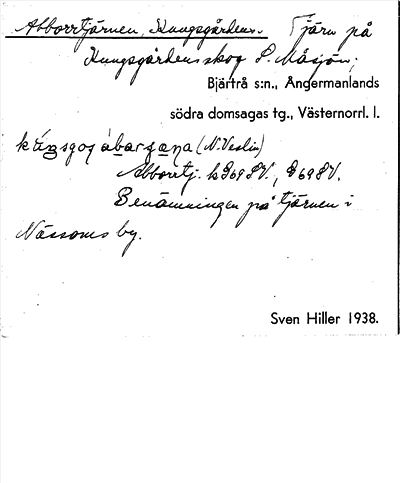 Abborrtjärnen, Kungsgårdens. Tjärn på
Kungsgårdens skog S. Måsjön;
Bjärtrå s:n., Ångermanlands
södra domsagas tg., Västernorrl. l.
(N. Veslin)
Abborrtj.
Benämningen på tjärnen i
Nässoms by.
Sven Hiller 1938.